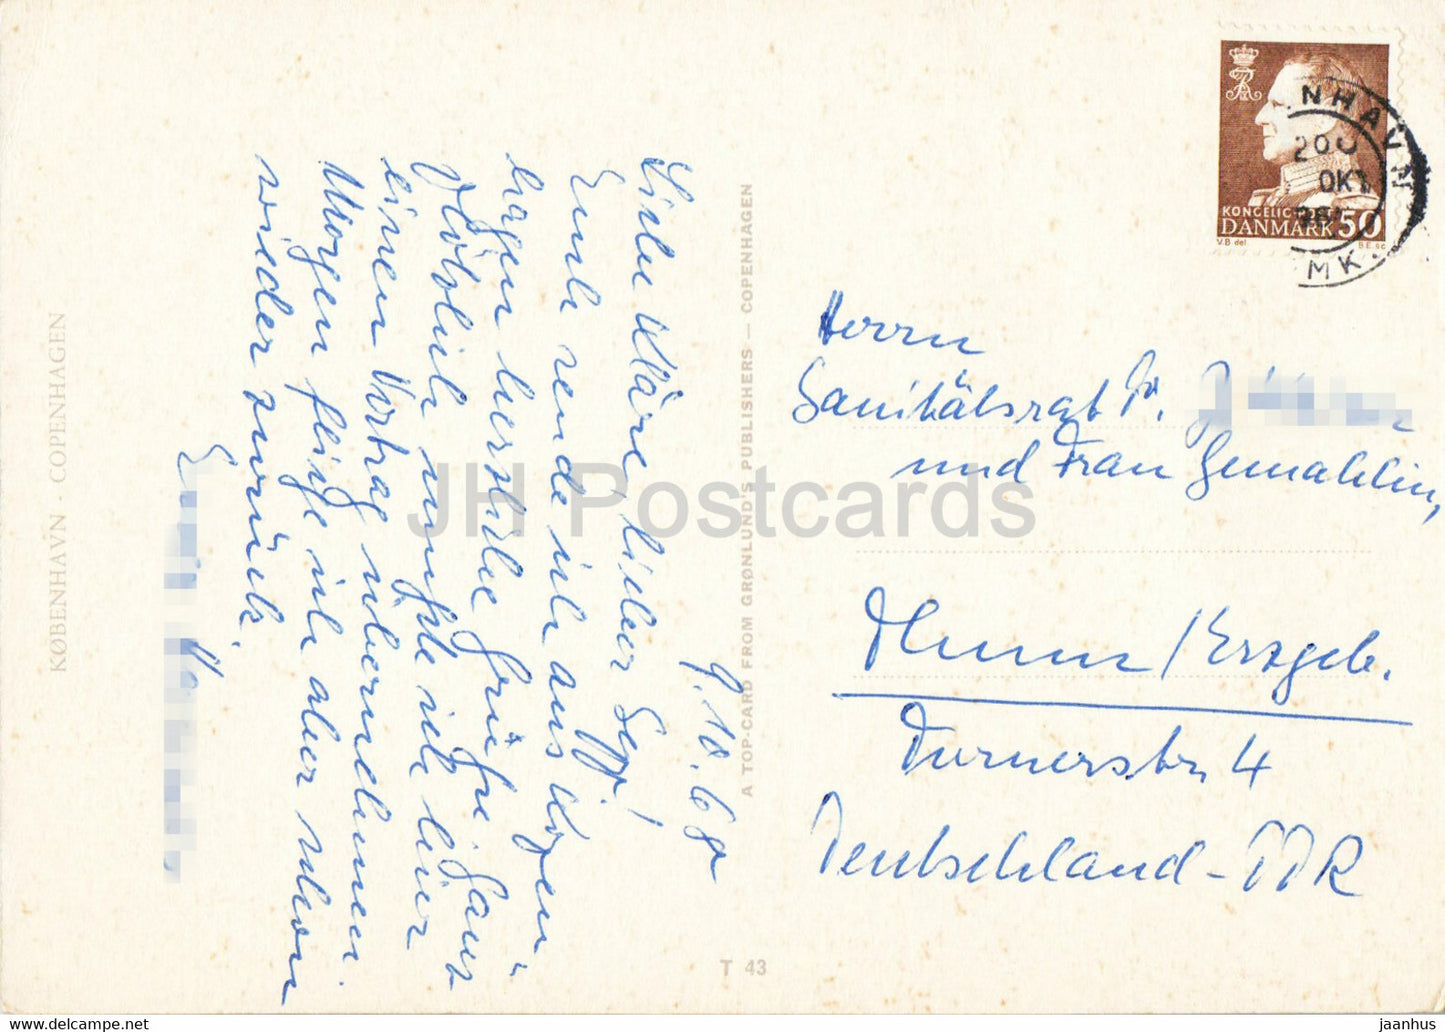 9.10.68
Liebe Kläre, lieber Sepp!
Euch sende ich aus Kopen-
hagen herzliche Grüße. Ganz
plötzlich mußte ich hier
einen Vortrag übernehmen.
Morgen fliege ich aber schon
wieder zurück.
Herrn
Sanitätsrat Dr.
und Frau Gemahlin,
Thum/Erzgeb.
Turnerstr. 4
Deutschland-DDR
KØBENHAVN · COPENHAGEN
A TOP-CARD FROM GRØNLUND'S PUBLISHERS — COPENHAGEN
T 43
DANMARK 50
V.B del. B.E. sc
NHAVN
OKT
MK.
JH Postcards
jaanhus @ www.delcampe.net